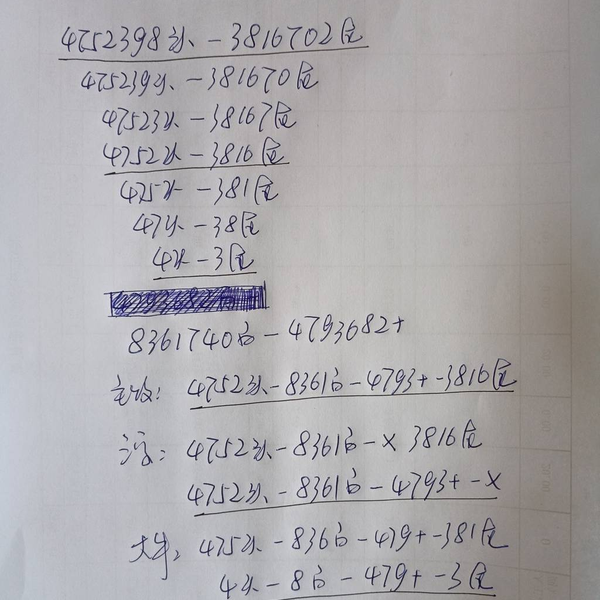 4752398头-3816702尾
475239头-381670尾
47523头-38167尾
4752头-3816尾
475头-381尾
47头-38尾
4头-3尾
8361740百-4793682十
主攻: 4752头-8361百-4793十-3816尾
4752头-8361百-X 3816尾
4752头-8361百-4793十-X
475头-836百-479十-381尾
4头-8百-479十-3尾